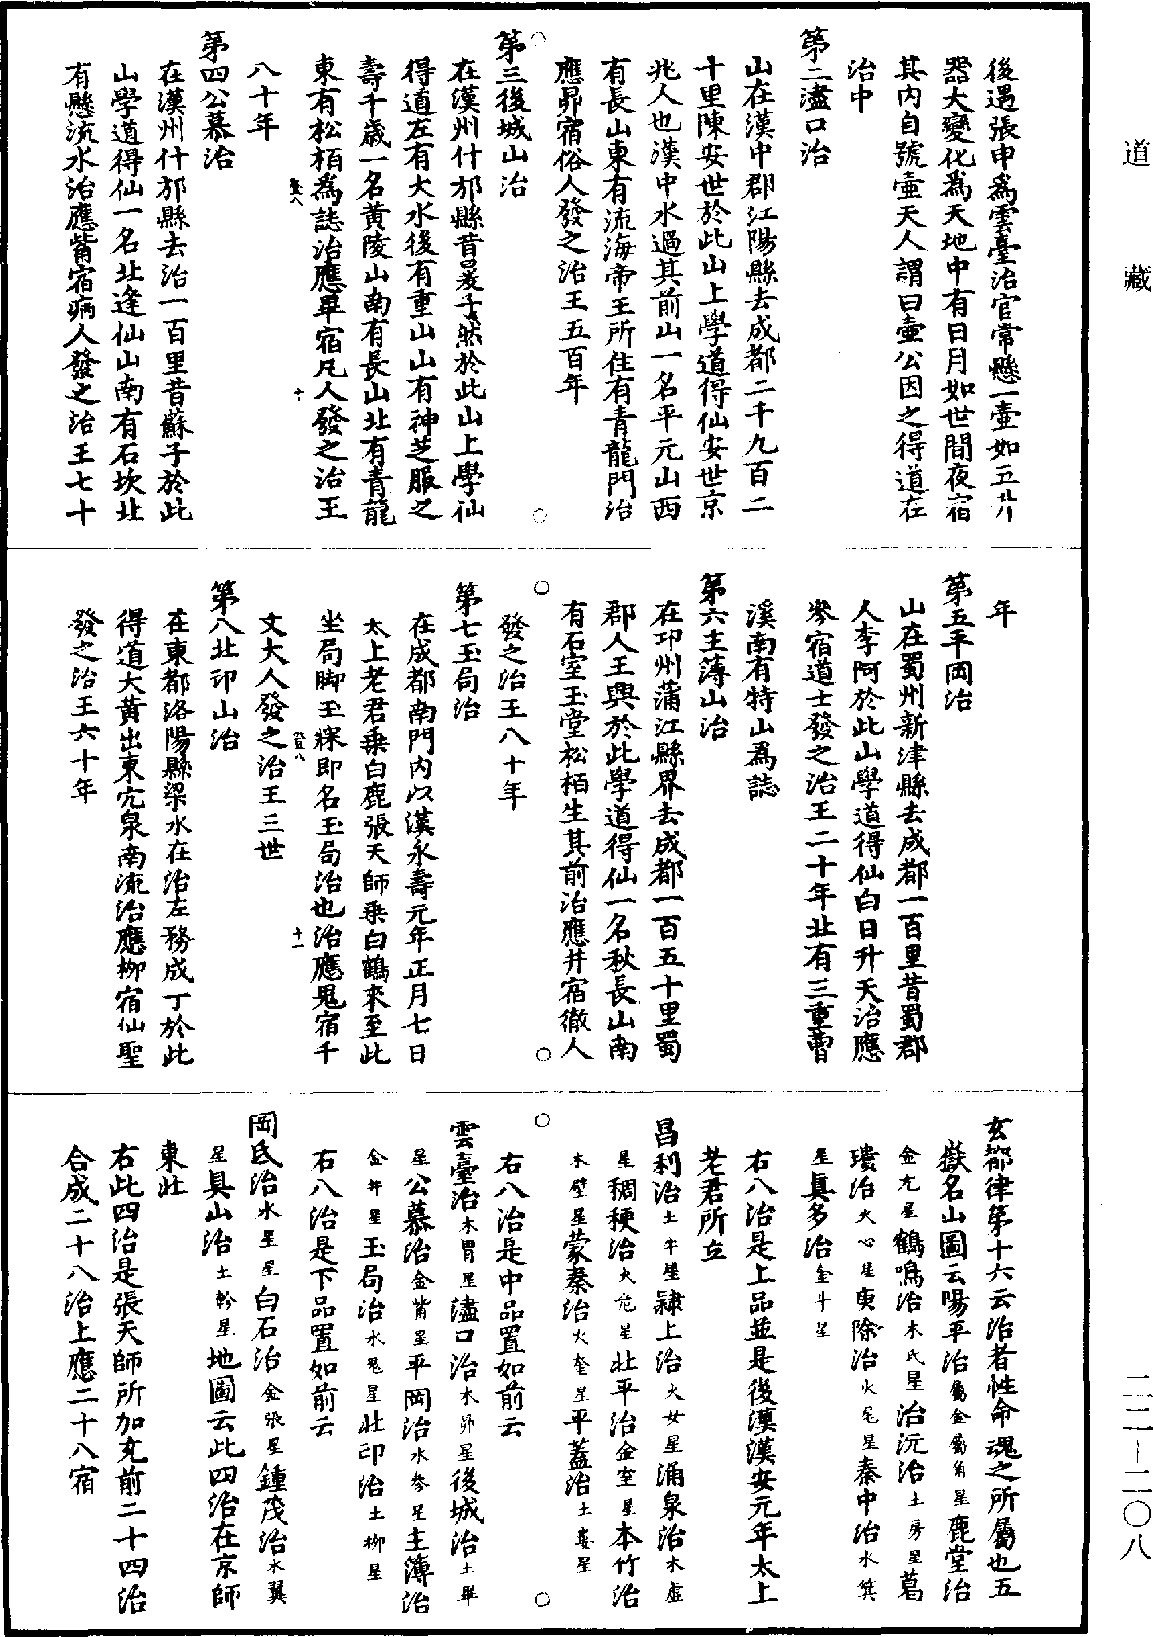 道藏
後遇張申爲雲臺治官常懸一壺如五升
器大變化爲天地中有日月如世間夜宿
其内自號壺天人謂曰壺公因之得道在
治中
第二濜口治
山在漢中郡江陽縣去成都二千九百二
十里陳安世於此山上學道得仙安世京
兆人也漢中水過其前山一名平元山西
有長山東有流海帝王所住有青龍門治
應昴宿俗人發之治王五百年
第三後城山治
在漢州什邡縣昔晏子然於此山上學仙
得道左有大水後有重山山有神芝服之
壽千歲一名黄陵山南有長山北有青龍
東有松栢爲誌治應畢宿凡人發之治王
八十年
第四公慕治
在漢州什邡縣去治一百里昔蘇子於此
山學道得仙一名北逢仙山南有石坎北
有懸流水治應觜宿病人發之治王七十
年
第五平岡治
山在蜀州新津縣去成都一百里昔蜀郡
人李阿於此山學道得仙白日升天治應
參宿道士發之治王二十年北有三重曹
溪南有特山爲誌
第六主薄山治
在邛州蒲江縣界去成都一百五十里蜀
郡人王興於此學道得仙一名秋長山南
有石室玉堂松栢生其前治應井宿徹人
發之治王八十年
第七玉局治
在成都南門内以漢永壽元年正月七日
太上老君乗白鹿張天師乗白鶴來至此
坐局脚玉牀即名玉局治也治應鬼宿千
丈大人發之治王三世
第八北邙山治
在東都洛陽縣梁水在治左務成丁於此
得道大黄出東宂泉南流治應柳宿仙聖
發之治王六十年
玄都律第十六云治者性命魂之所屬也五
嶽名山圖云陽平治屬金屬角星鹿堂治
金亢星鶴鳴治木氐星治沅治土房星葛
璝治火心星庚除治火尾星秦中治水箕
星眞多治金斗星
右八治是上品並是後漢漢安元年太上
老君所立
昌利治土牛星隸上治火女星涌泉治木虚
星稠稉治火危星北平治金室星本竹治
木壁星蒙秦治火奎星平蓋治土婁星
右八治是中品置如前云
雲臺治木胃星濜口治木昴星後城治土畢
星公慕治金觜星平岡治水參星主薄治
金井星玉局治水鬼星北邙治土柳星
右八治是下品置如前云
岡氐治水星星白石治金張星鍾茂治水翼
星具山治土軫星地圖云此四治在京師
東北
右此四治是張天師所加充前二十四治
合成二十八治上應二十八宿
二二—二〇八